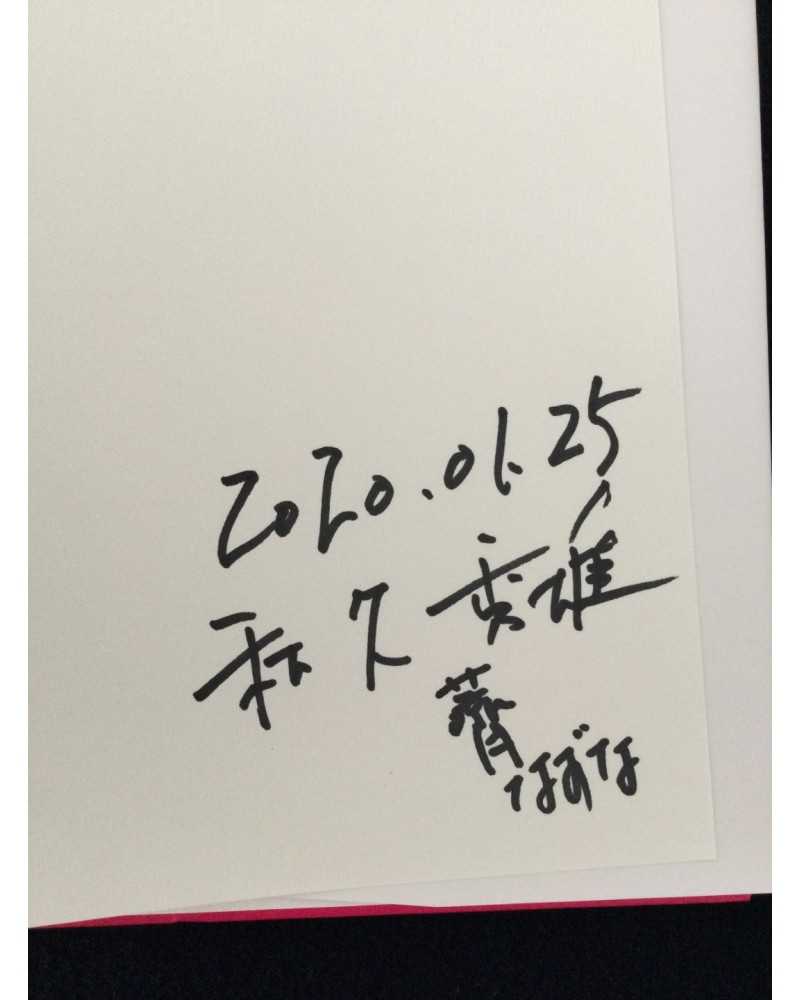 2020.01.25
和久秀雄
薺
なずな